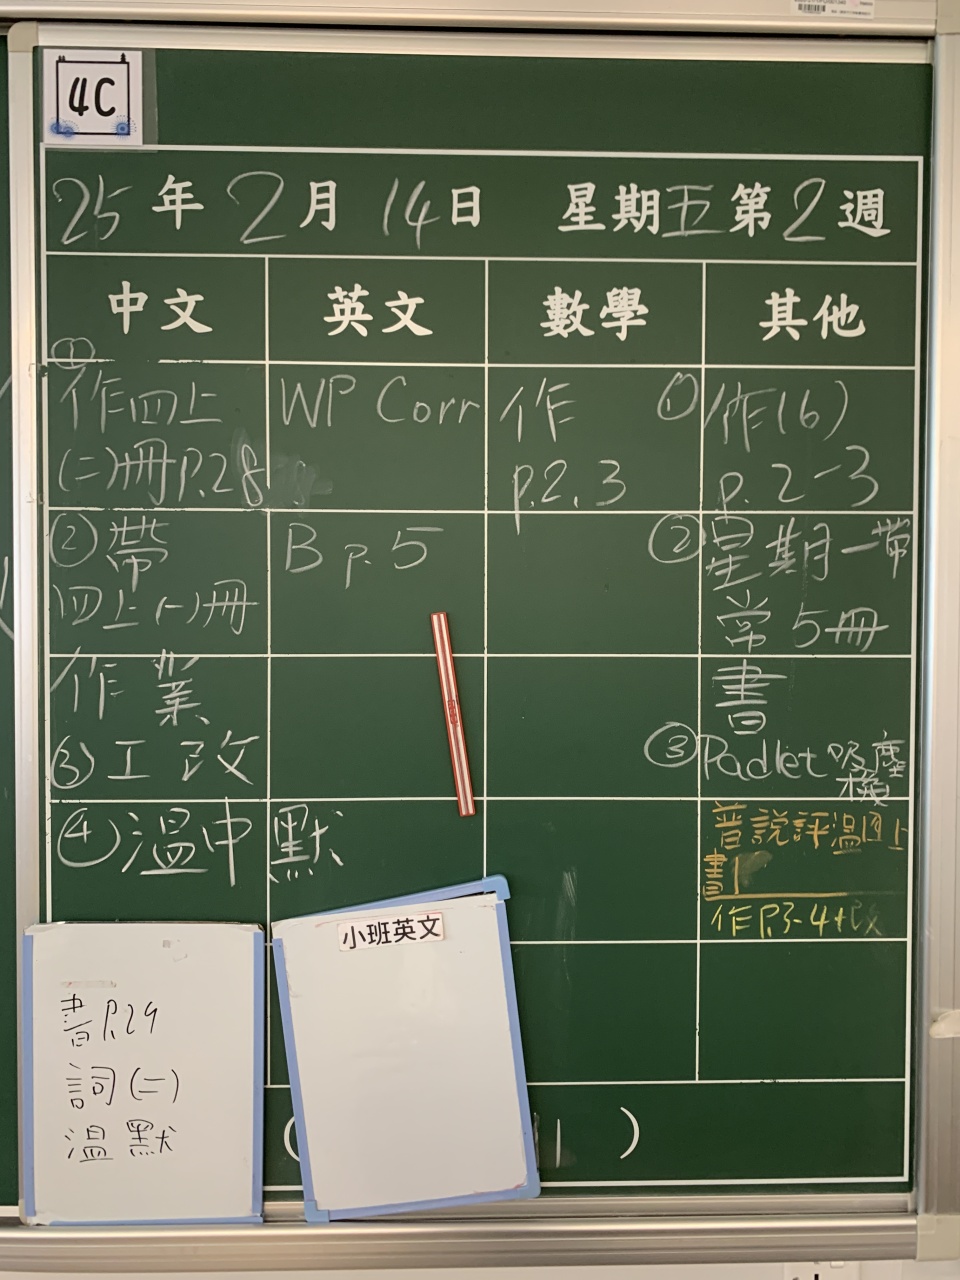 4C
25年2月14日 星期五第2週
中文 英文 數學 其他
① 作四上 WP Corr 作 ① 作(6)
(二)冊P.28 p.2.3 p.2-3
② 帶 B p.5 ② 星期一帶
四上(一)冊 常5冊
作業 書
③ 工改 ③ Padlet 吸塵機
④ 溫中默
普說評溫四上
書
作P.3-4+改
小班英文
書P.29
詞(二)
溫默
( )